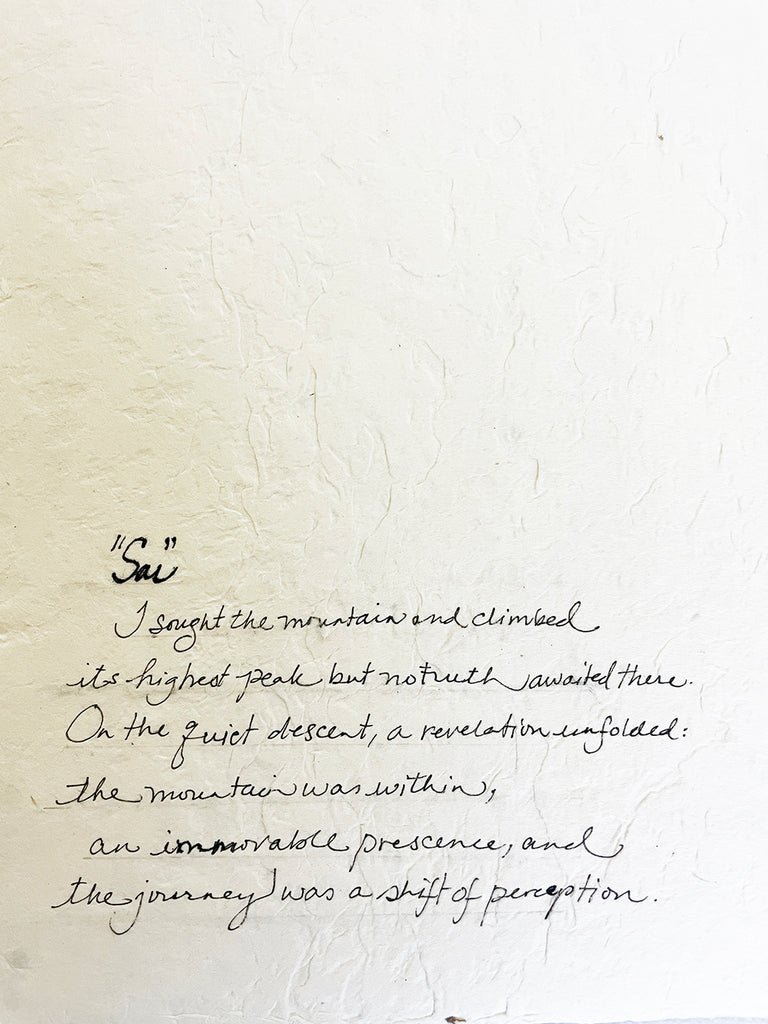 "Sai"
I sought the mountain and climbed
its highest peak but no truth awaited there.
On the quiet descent, a revelation unfolded:
the mountain was within,
an immovable prescence, and
the journey was a shift of perception.